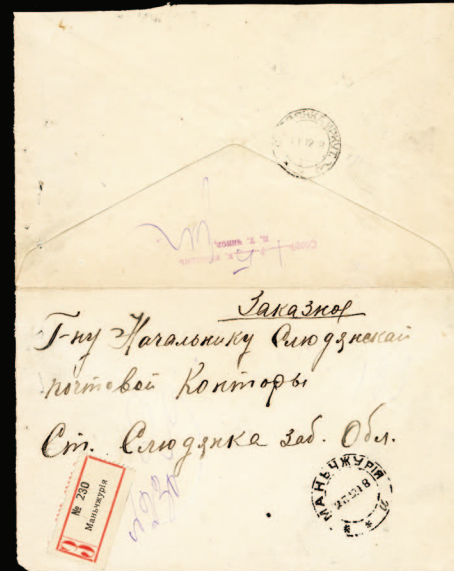 Заказное
Г-ну Начальнику Слюдянской
почтовой Конторы
Ст. Слюдянка Заб. Обл.
З
№ 230
Маньчжурія
№230
МАНЬЧЖУРІЯ